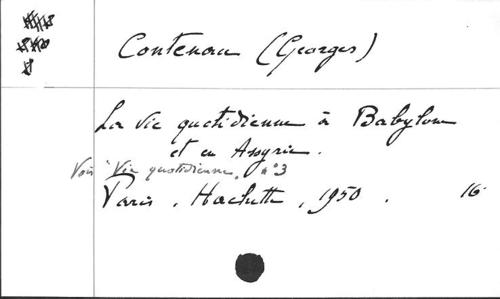 Contenau (Georges)
La vie quotidienne à Babylone
et en Assyrie.
Voir "Vie quotidienne, n° 3
Paris, Hachette, 1950. 16